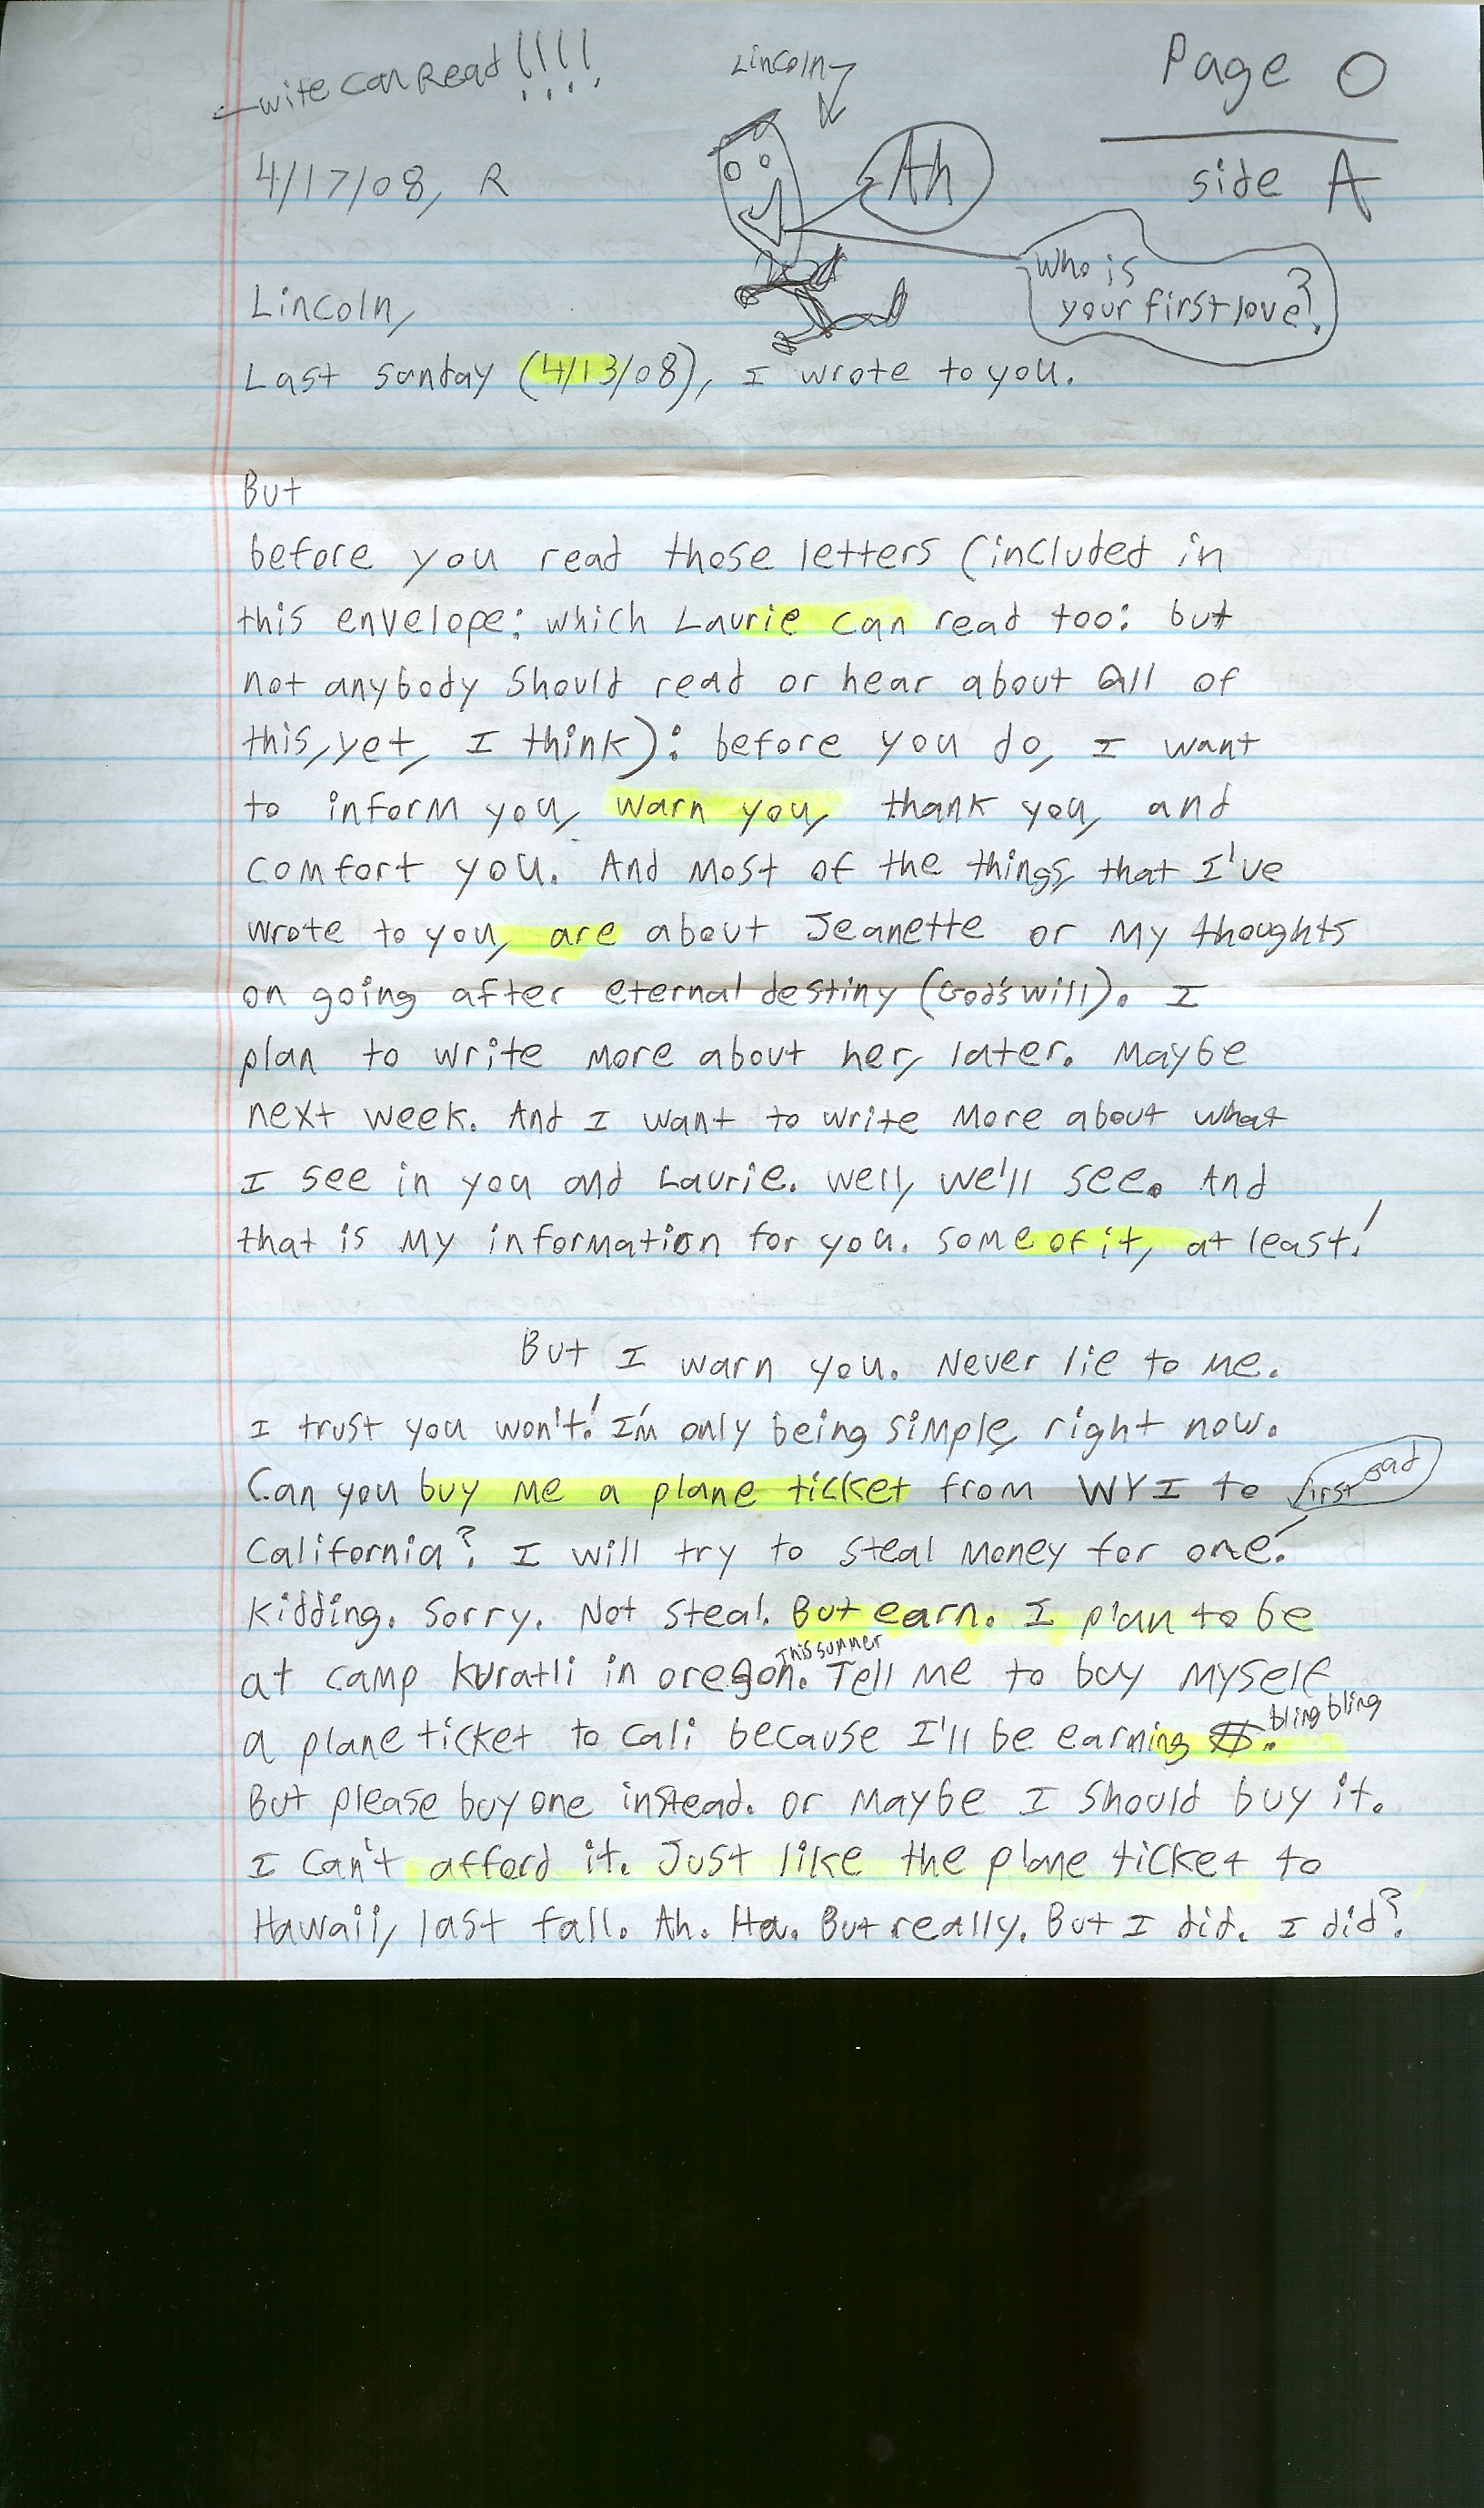 wife can Read!!!!
Lincoln
Page 0
side A
4/17/08, R
Ah
Who is
your first love?
Lincoln,
Last sunday (4/13/08), I wrote to you.
But
before you read those letters (included in
this envelope; which Laurie can read too; but
not anybody should read or hear about all of
this, yet, I think): before you do, I want
to inform you, warn you, thank you, and
comfort you. And most of the things, that I've
wrote to you, are about Jeanette or my thoughts
on going after eternal destiny (God's will). I
plan to write more about her, later. Maybe
next week. And I want to write more about what
I see in you and Laurie. Well, we'll see. And
that is my information for you. Some of it, at least!
But I warn you. Never lie to me.
I trust you won't! I'm only being simple, right now.
Can you buy me a plane ticket from WYI to
first
California? I will try to steal money for one!
Kidding. Sorry. Not steal. But earn. I plan to be
at camp Kuratli in oregon. This summer Tell me to buy myself
a plane ticket to Cali because I'll be earning $. bling bling
But please buy one instead. Or maybe I should buy it.
I can't afford it. Just like the plane ticket to
Hawaii, last fall. Ah. Ha. But really. But I did. I did?